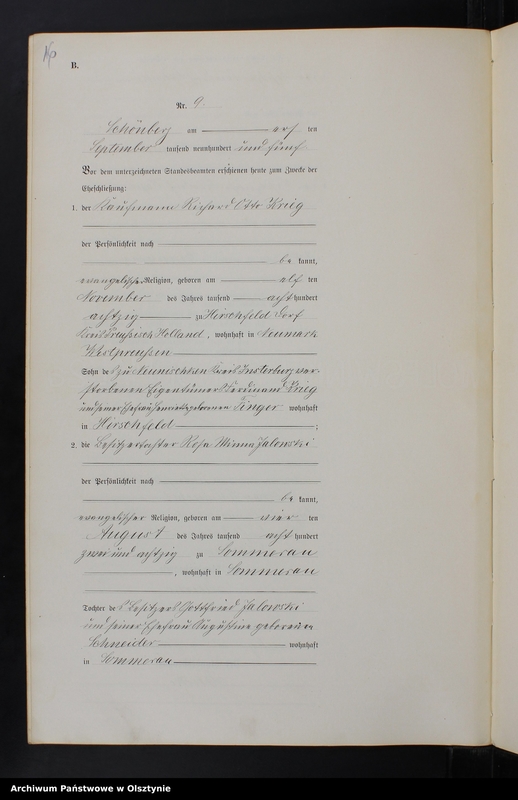 B.
Nr. 9.
Schönberg am elf ten
September tausend neunhundert und fünf
Vor dem unterzeichneten Standesbeamten erschienen heute zum Zwecke der
Eheschließung:
1. der Kaufmann Richard Otto Krieg
der Persönlichkeit nach
be kannt,
evangelischer Religion, geboren am elf ten
November des Jahres tausend acht hundert
achtzig zu Hirschfeld Dorf
Kreis Preußisch Holland, wohnhaft in Neumark
Westpreußen
Sohn des zu Neunischken Kreis Insterburg ver-
storbenen Eigentümers Ferdinand Krieg
und seiner Ehefrau geborenen Finger wohnhaft
in Hirschfeld ;
2. die Besitzertochter Rosa Minna Jalowski
der Persönlichkeit nach
be kannt,
evangelischer Religion, geboren am vier ten
August des Jahres tausend acht hundert
zwei und achtzig zu Sommerau
, wohnhaft in Sommerau
Tochter des Besitzers Gottfried Jalowski
und seiner Ehefrau Augustine geborenen
Schneider wohnhaft
in Sommerau
Archiwum Państwowe w Olsztynie